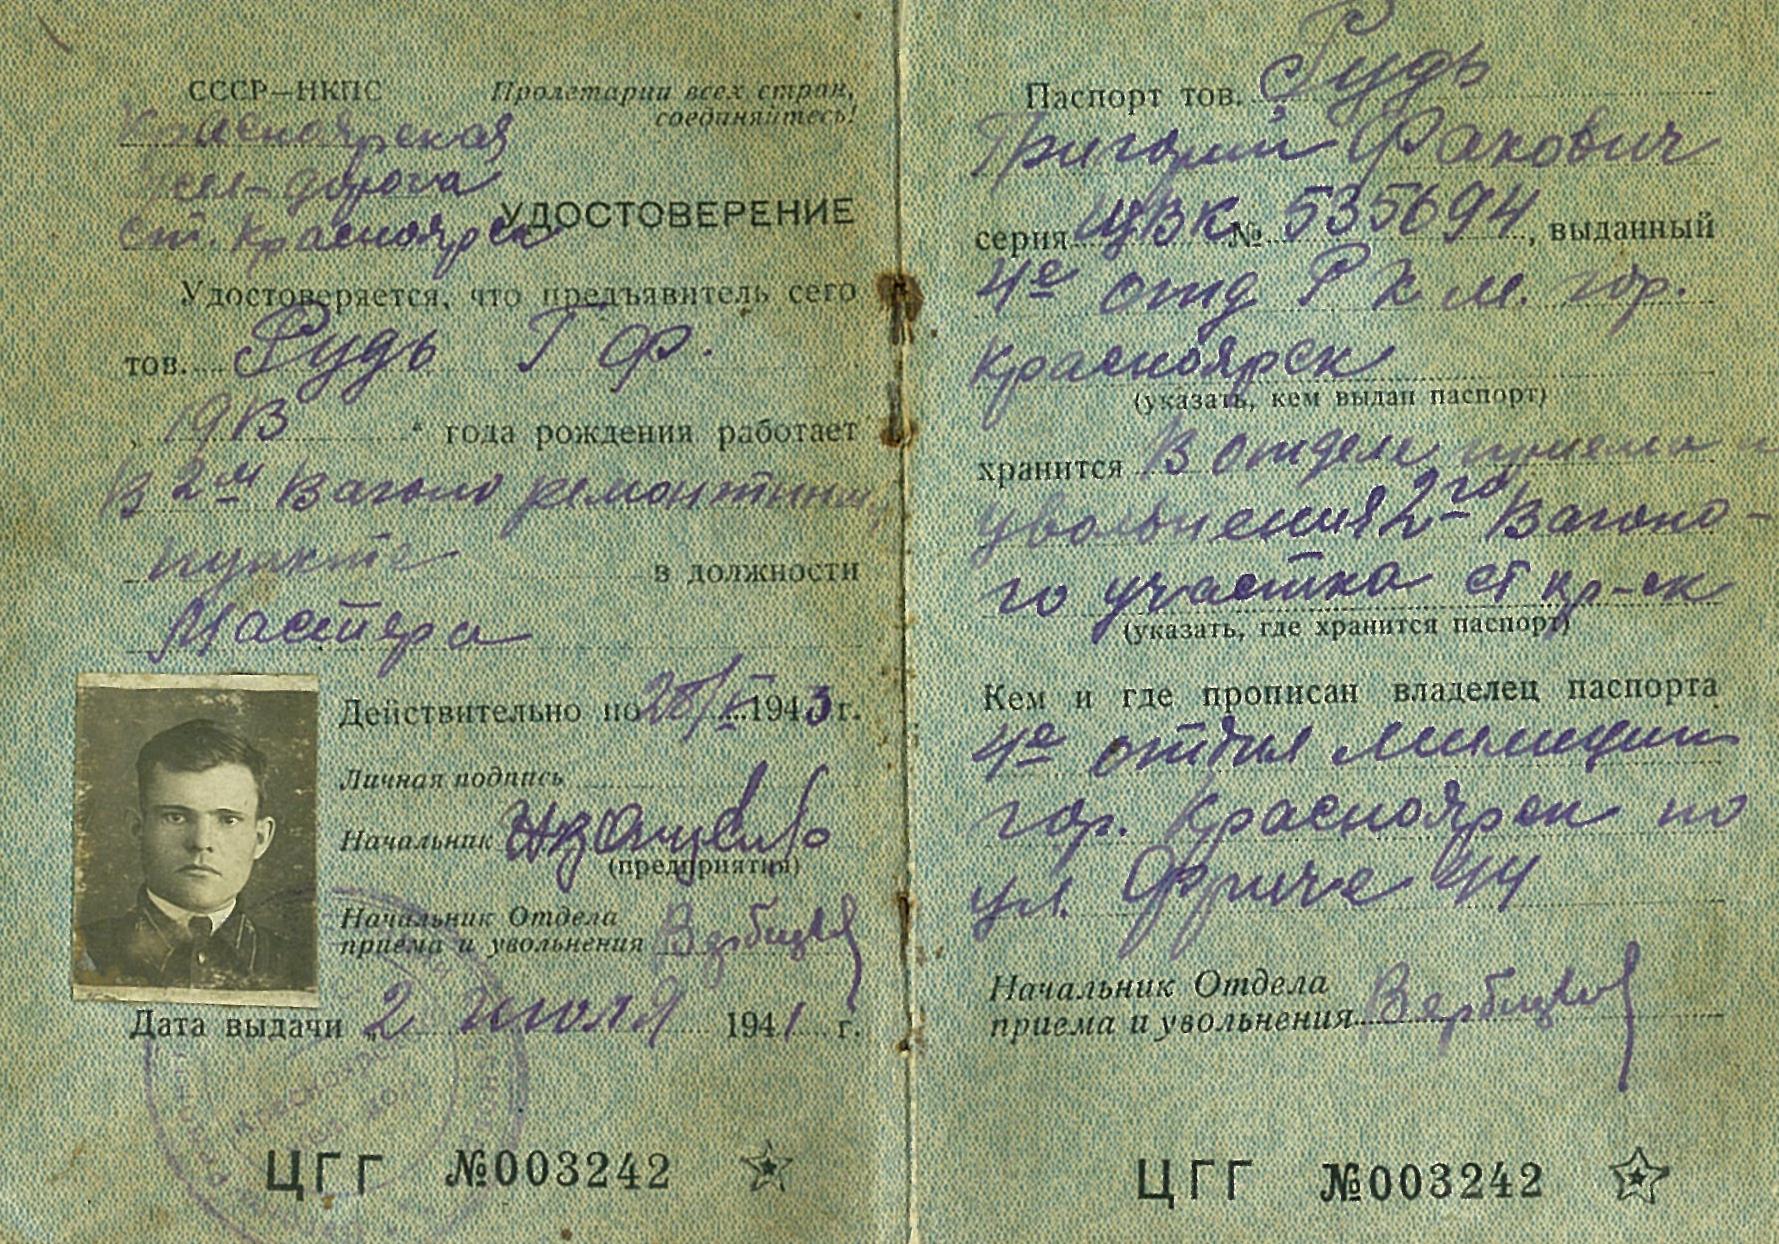 СССР—НКПС
Пролетарии всех стран,
соединяйтесь!
Красноярская
жел-дорога
ст. Красноярск
УДОСТОВЕРЕНИЕ
Удостоверяется, что предъявитель сего
тов. Рудь Г Ф.
„1913“ года рождения работает
в 2м Вагоно ремонтном
пункте в должности
Мастера
Действительно по 1943 г.
Личная подпись
Начальник
(предприятия)
Начальник Отдела
приема и увольнения Вербицкий
Дата выдачи „2 июля 1941 г.
ЦГГ №003242
Паспорт тов. Рудь
Григорий Факович
серия ЦВК № 535694, выданный
4е отд Р К м. гор.
Красноярск
(указать, кем выдан паспорт)
хранится В отделе приема и
увольнения 2го Вагоно-
го участка ст Кр-ск
(указать, где хранится паспорт)
Кем и где прописан владелец паспорта
4е отдел милиции
гор. Красноярск по
ул. 44
Начальник Отдела
приема и увольнения Вербицкий
ЦГГ №003242